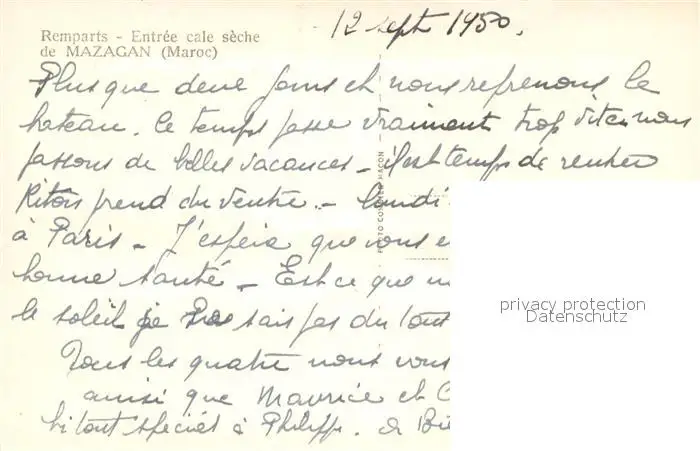 12 sept 1950.
Remparts - Entrée cale sèche
de MAZAGAN (Maroc)
Plus que deux jours et nous reprenons le
bateau. Le temps passe vraiment trop vite, nous
passons de belles vacances - il est temps de rentrer
Riton prend du ventre. - Lundi
à Paris - J'espère que vous
bonne santé - Est ce que
le soleil je ne sais pas du tout
Tous les quatre nous vous
ainsi que Maurice et
spécial à Philippe.
PHOTO COMBIER MACON
privacy protection
Datenschutz